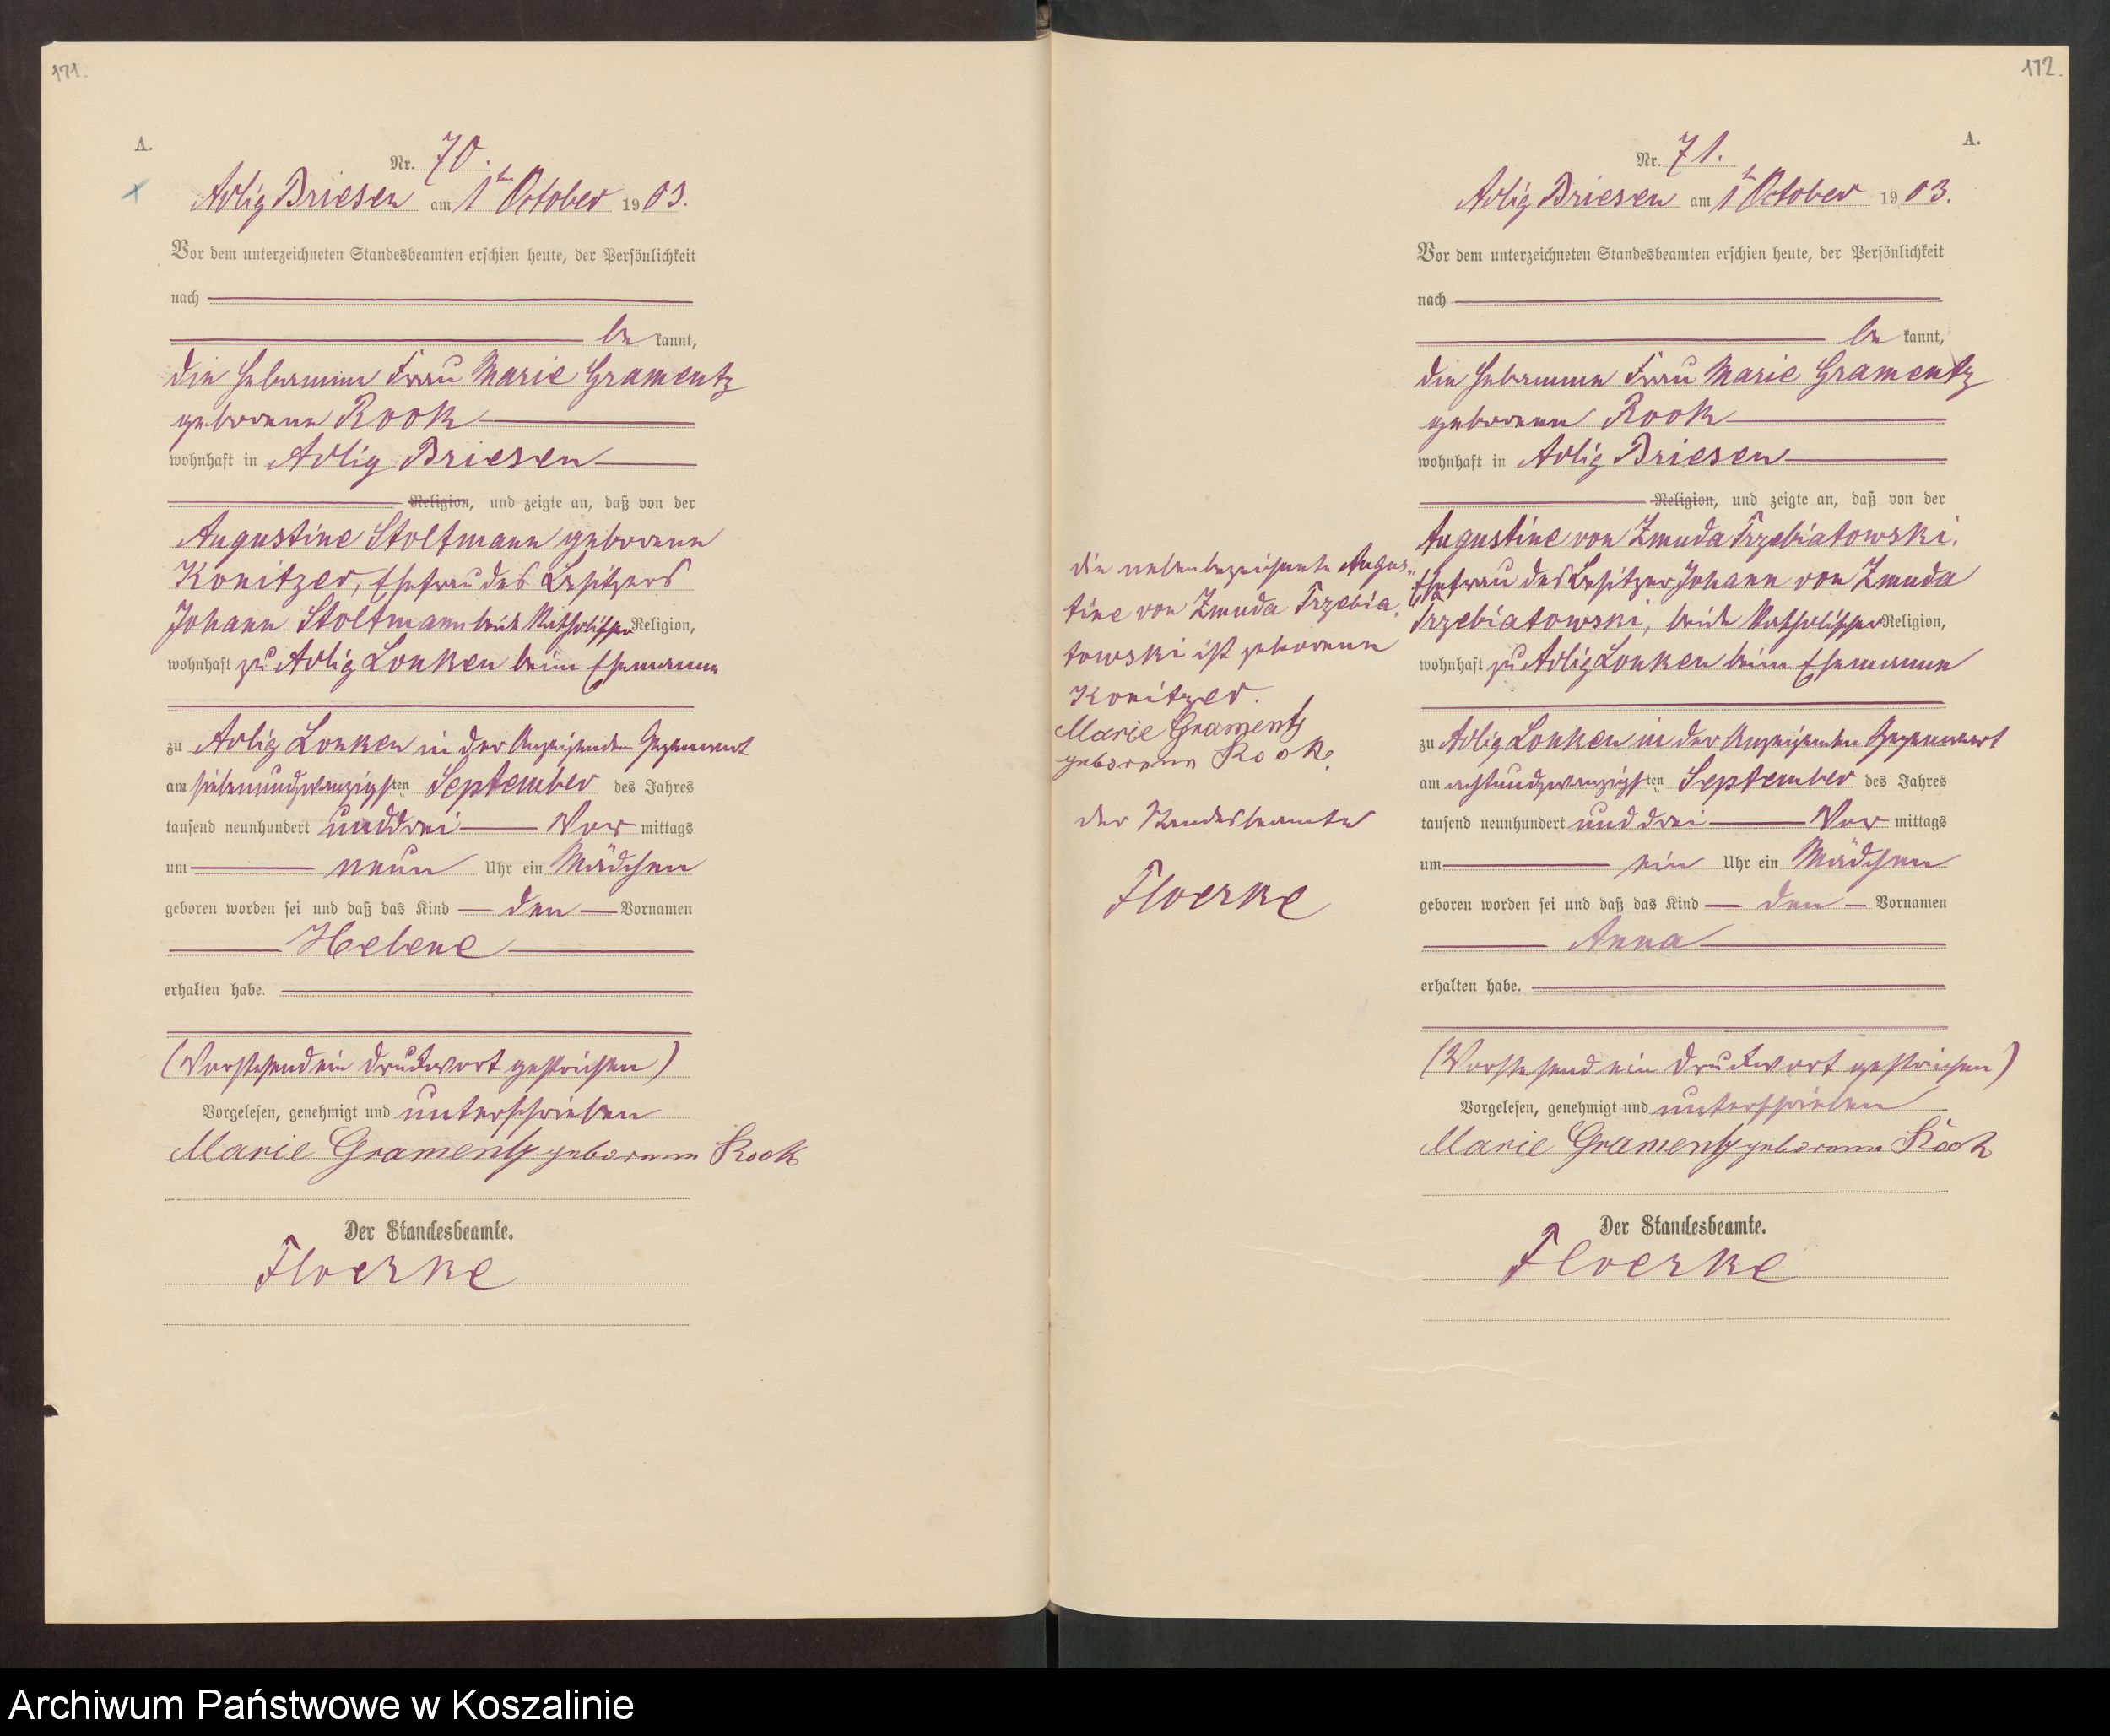 171.
A.
Nr. 70.
Adlig Briesen am 1ten October 1903.
Vor dem unterzeichneten Standesbeamten erschien heute, der Persönlichkeit
nach
be kannt,
die Hebamme Frau Marie Gramentz
geborene Rook
wohnhaft in Adlig Briesen
Religion, und zeigte an, daß von der
Augustine Stoltmann geborene
Konitzer, Ehefrau des Besitzers
Johann Stoltmann beide katholischer Religion,
wohnhaft zu Adlig Lonken beim Ehemanne
zu Adlig Lonken in der Anzeigenden Gegenwart
am siebenundzwanzigsten September des Jahres
tausend neunhundert und drei Vor mittags
um neun Uhr ein Mädchen
geboren worden sei und daß das Kind den Vornamen
Helene
erhalten habe.
(Vorstehend ein Druckwort gestrichen)
Vorgelesen, genehmigt und unterschrieben
Marie Gramentz geborene Rook
Der Standesbeamte.
Floerke
172.
A.
Nr. 71.
Adlig Briesen am 1t October 1903.
Vor dem unterzeichneten Standesbeamten erschien heute, der Persönlichkeit
nach
be kannt,
die Hebamme Frau Marie Gramentz
geborene Rook
wohnhaft in Adlig Briesen
Religion, und zeigte an, daß von der
Augustine von Zmuda Trzebiatowski,
Ehefrau des Besitzer Johann von Zmuda
Trzebiatowski, beide katholischer Religion,
wohnhaft zu Adlig Lonken beim Ehemanne
zu Adlig Lonken in der Anzeigenden Gegenwart
am achtundzwanzigsten September des Jahres
tausend neunhundert und drei Vor mittags
um ein Uhr ein Mädchen
geboren worden sei und daß das Kind den Vornamen
Anna
erhalten habe.
(Vorstehend ein Druckwort gestrichen)
Vorgelesen, genehmigt und unterschrieben
Marie Gramentz geborene Rook
Der Standesbeamte.
Floerke
die nebenbezeichnete Augus-
tine von Zmuda Trzebia-
towski ist geborene
Konitzer.
Marie Gramentz
geborene Rook.
der Standesbeamte
Floerke
Archiwum Państwowe w Koszalinie